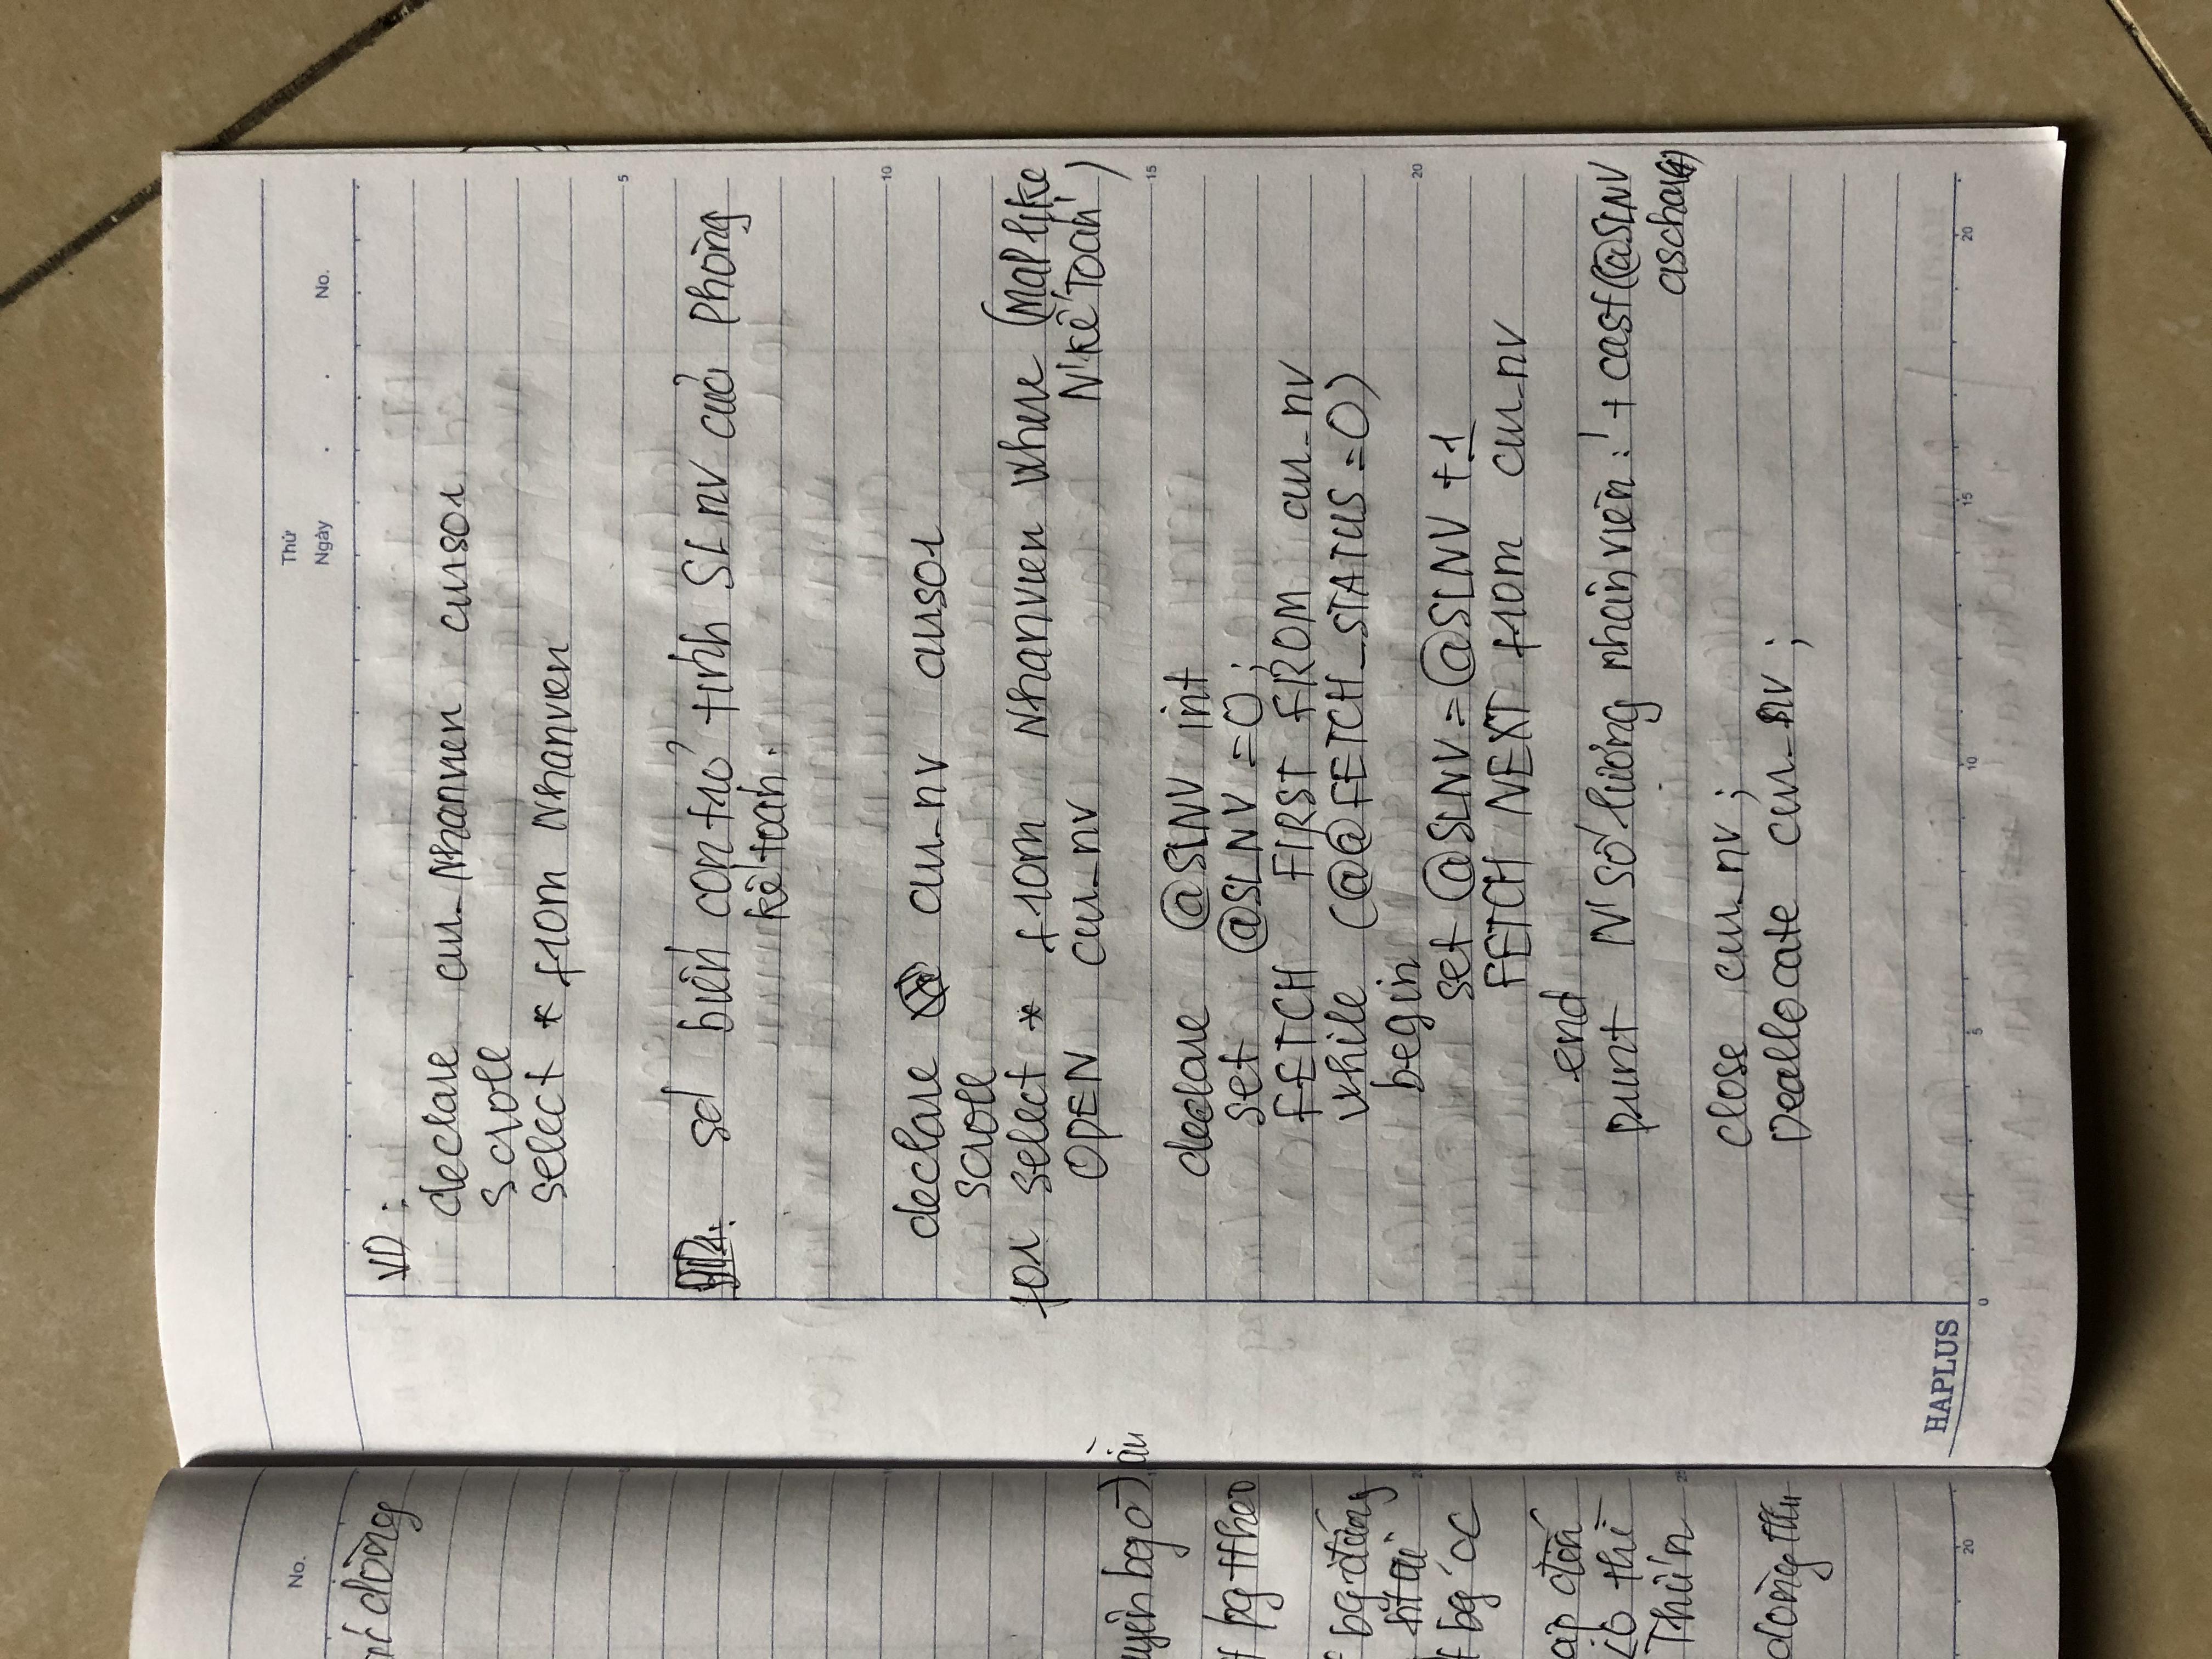 No.
dòng
bg
bg đáng
bg
đến
thì
dòng
20
Thứ
Ngày . . No.
VD :
declare cur_Nhanvien cursor
scroll
select * from Nhanvien
5
sd biến con trỏ tính SL nv của phòng
kế toán.
10
declare cur_nv cursor
scroll
for select * from Nhanvien where (MaP like
OPEN cur_nv N'Kế Toán')
15
declare @SLNV int
set @SLNV =0;
FETCH FIRST FROM cur_nv
while (@@FETCH_STATUS =0)
begin
20
set @SLNV = @SLNV +1
FETCH NEXT from cur_nv
end
print N'số lượng nhân viên:' + cast(@SLNV
as char
close cur_nv;
Deallocate cur_nv;
HAPLUS
0 5 10 15 20